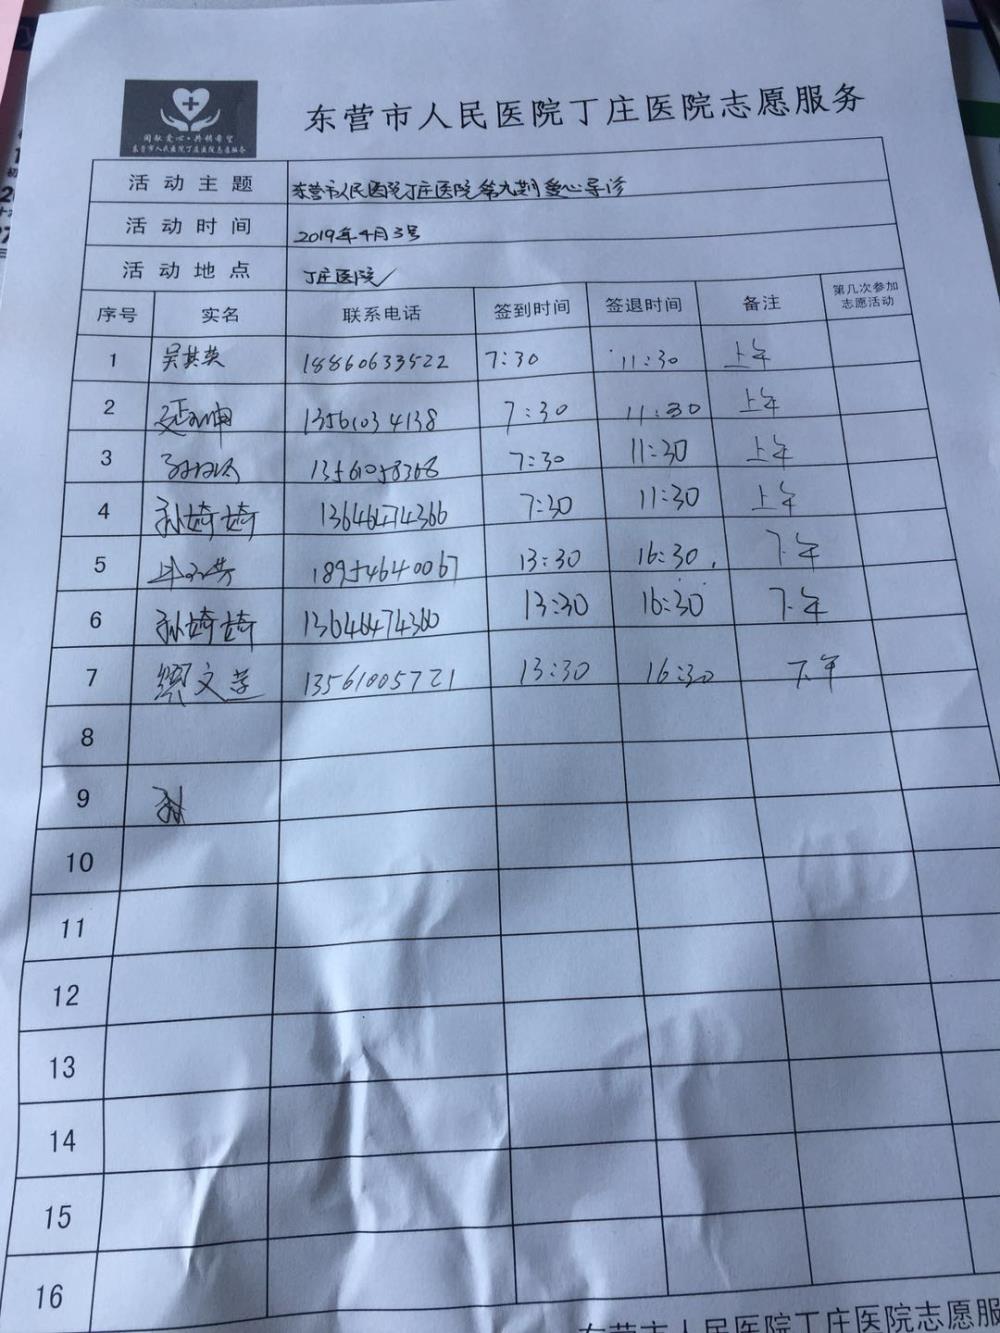 奉献爱心·共铸希望
东营市人民医院丁庄医院志愿服务
东营市人民医院丁庄医院志愿服务
活动主题 东营市人民医院丁庄医院第九期爱心导诊
活动时间 2019年4月3号
活动地点 丁庄医院
序号 实名 联系电话 签到时间 签退时间 备注 第几次参加志愿活动
1 吴其英 18860633522 7:30 11:30 上午
2 13561034138 7:30 11:30 上午
3 13561058368 7:30 11:30 上午
4 孙婷婷 13646474360 7:30 11:30 上午
5 18954640067 13:30 16:30. 下午
6 孙婷婷 13646474360 13:30 16:30 下午
7 文学 13561005721 13:30 16:30 下午
8
9 孙
10
11
12
13
14
15
16
东营市人民医院丁庄医院志愿服